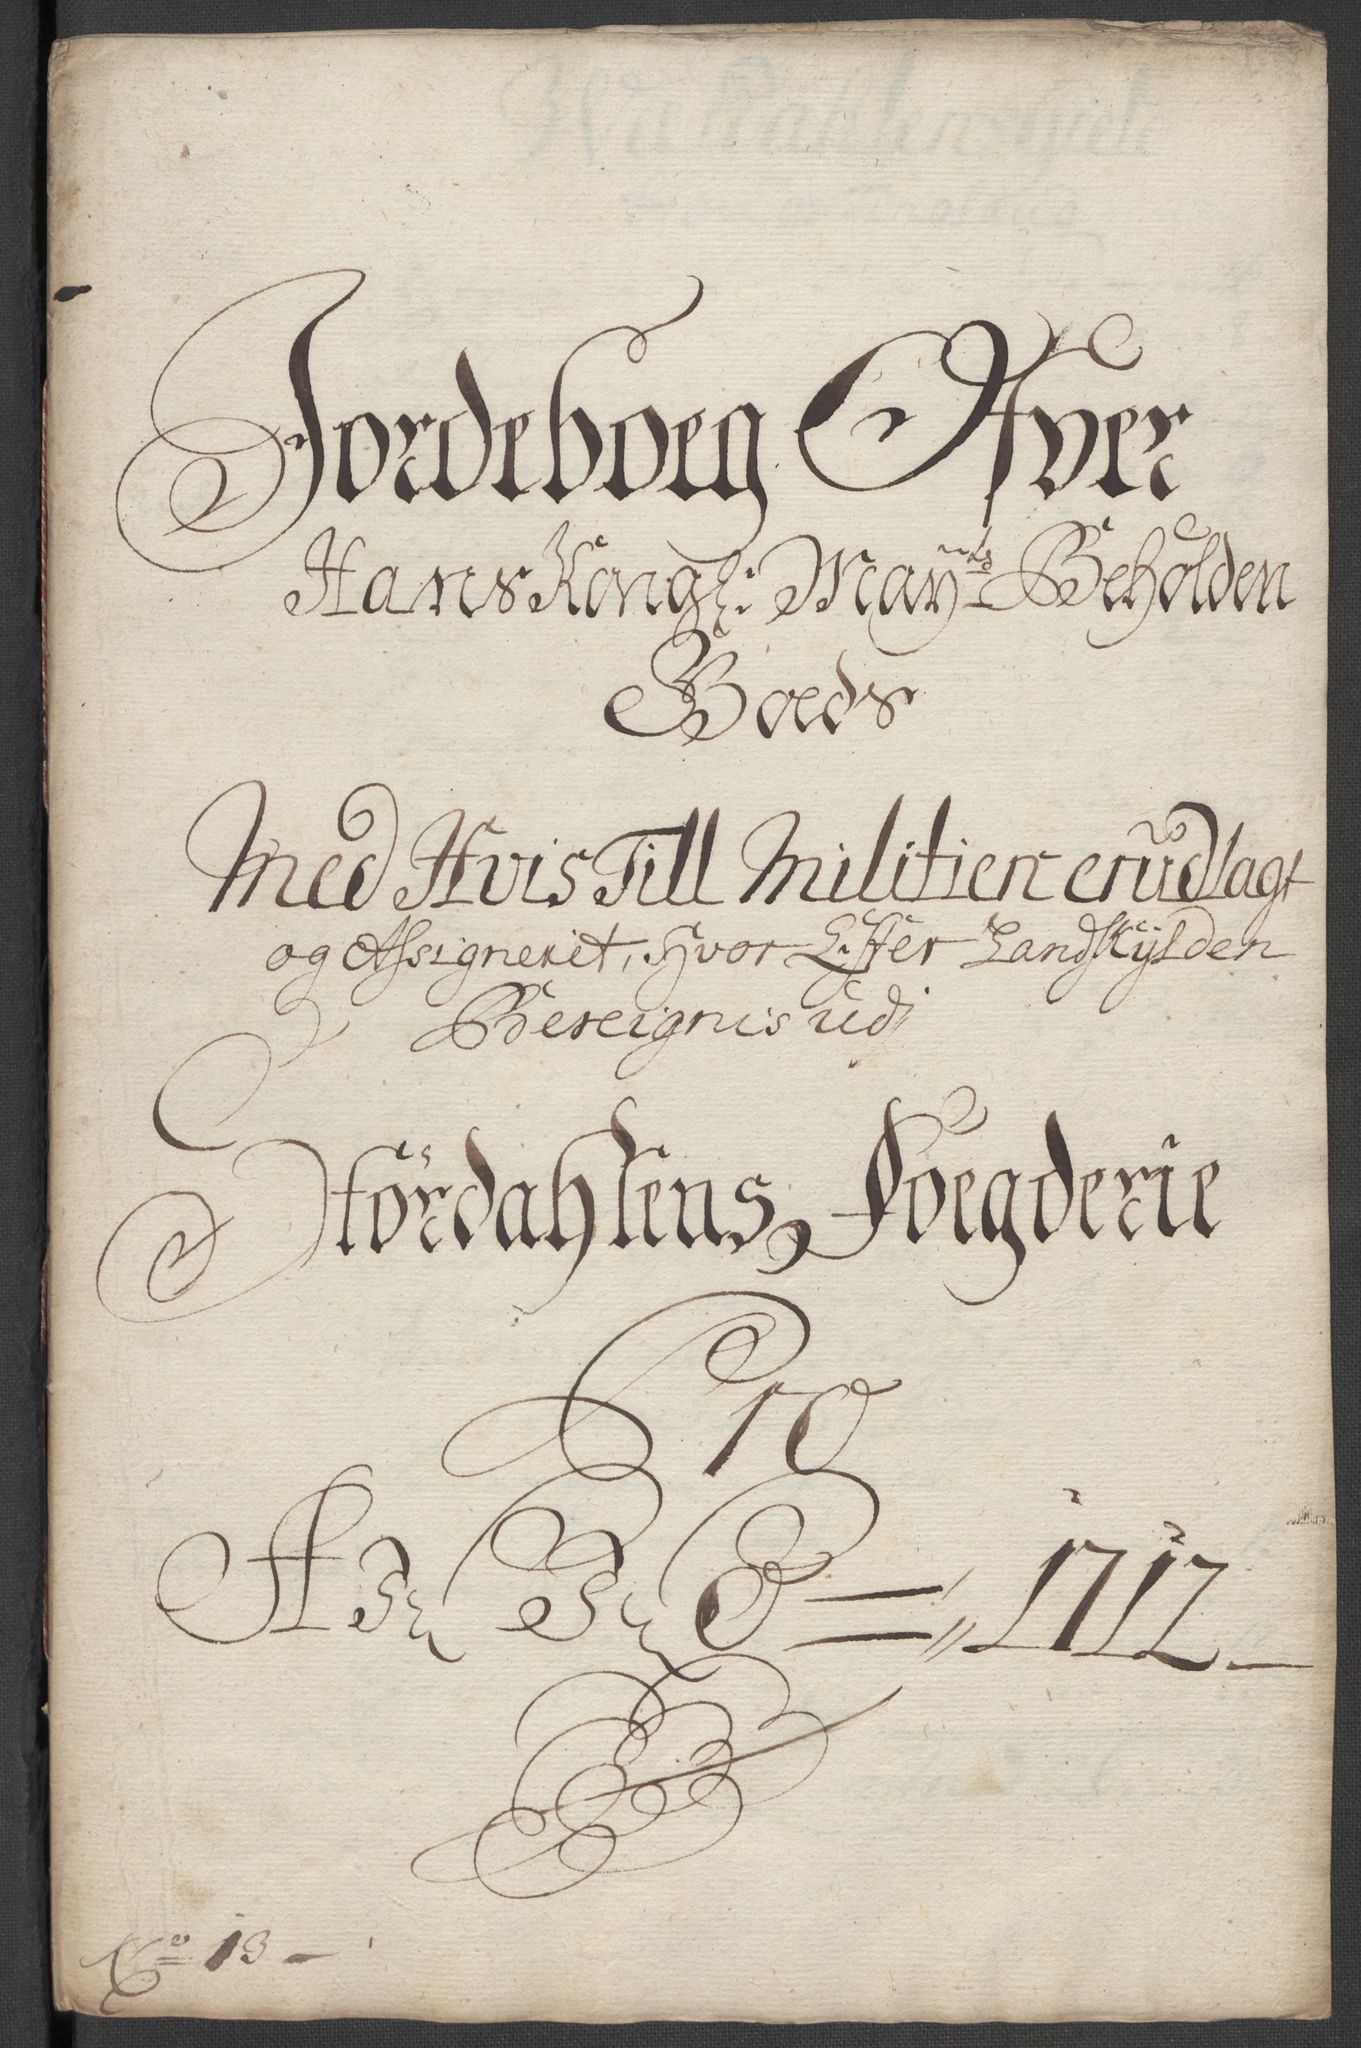 Jordeboeg Ofver
Hans Kongl: May:ts Beholden
Goeds
Med Hvis Till Militien er udlagt
og Assigneret, Hvor Effter Landskylden
Bereignis udj
Stördahlens Foegderie
Pro
A: 1712
No 13